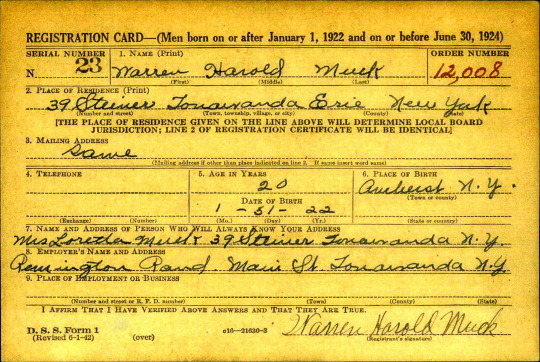 REGISTRATION CARD—(Men born on or after January 1, 1922 and on or before June 30, 1924)
SERIAL NUMBER 1. NAME (Print) ORDER NUMBER
N 23 Warren Harold Muck 12,008
(First) (Middle) (Last)
2. PLACE OF RESIDENCE (Print)
39 Steiner Tonawanda Erie New York
(Number and street) (Town, township, village, or city) (County) (State)
[THE PLACE OF RESIDENCE GIVEN ON THE LINE ABOVE WILL DETERMINE LOCAL BOARD
JURISDICTION; LINE 2 OF REGISTRATION CERTIFICATE WILL BE IDENTICAL]
3. MAILING ADDRESS
Same
(Mailing address if other than place indicated on line 2. If same insert word same)
4. TELEPHONE 5. AGE IN YEARS 6. PLACE OF BIRTH
20 Amherst N.Y.
DATE OF BIRTH (Town or county)
1 - 31 - 22
(Exchange) (Number) (Mo.) (Day) (Yr.) (State or country)
7. NAME AND ADDRESS OF PERSON WHO WILL ALWAYS KNOW YOUR ADDRESS
Mrs Loretta Muck 39 Steiner Tonawanda N.Y.
8. EMPLOYER'S NAME AND ADDRESS
Remington Rand. Main St. Tonawanda N.Y.
9. PLACE OF EMPLOYMENT OR BUSINESS
(Number and street or R. F. D. number) (Town) (County) (State)
I AFFIRM THAT I HAVE VERIFIED ABOVE ANSWERS AND THAT THEY ARE TRUE.
D. S. S. Form 1
(Revised 6-1-42) (over) c16—21630-3 Warren Harold Muck
(Registrant's signature)